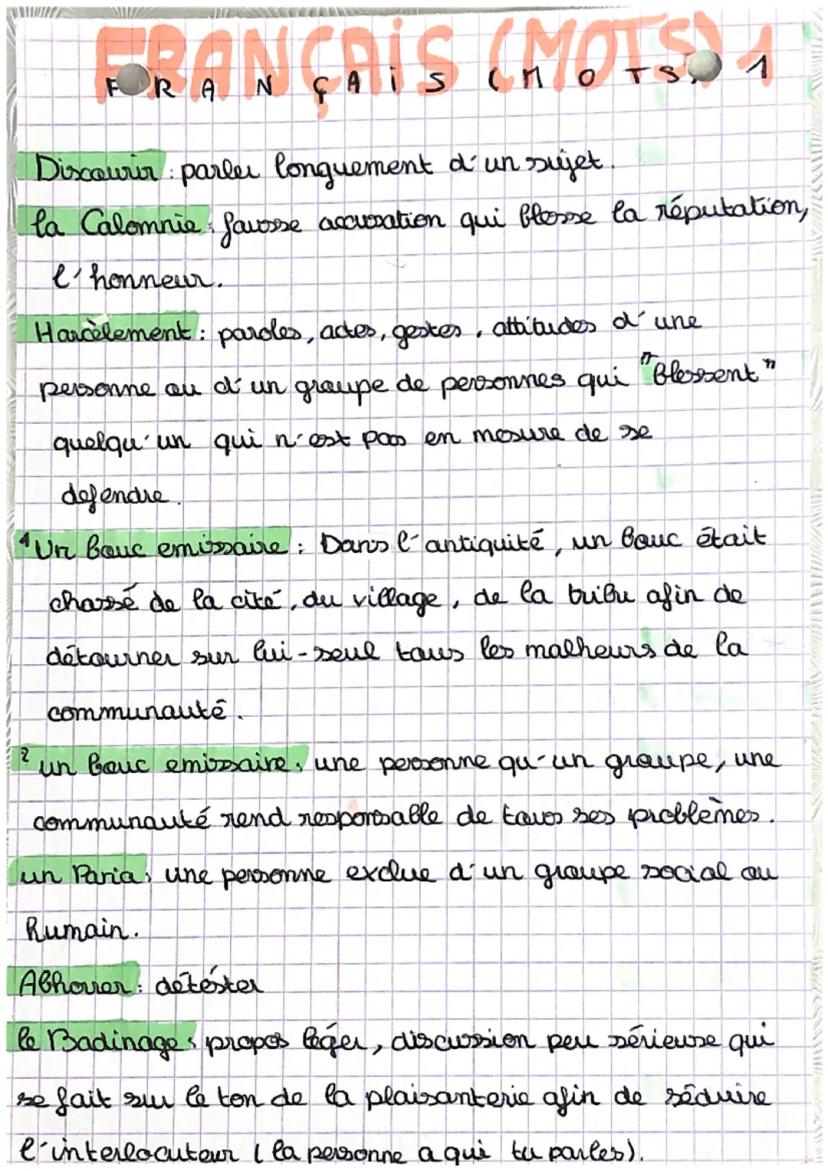 FRANÇAIS (MOTS) 1
FRANÇAIS (MOTS) 1
Discourir : parler longuement d'un sujet.
la Calomnie : fausse accusation qui blesse la réputation,
l'honneur.
Harcèlement : paroles, actes, gestes, attitudes d'une
personne ou d'un groupe de personnes qui "blessent"
quelqu'un qui n'est pas en mesure de se
defendre.
1 Un bouc emissaire : Dans l'antiquité, un bouc était
chassé de la cité, du village, de la tribu afin de
détourner sur lui-seul tous les malheurs de la
communauté.
2 un bouc emissaire : une personne qu'un groupe, une
communauté rend responsable de tous ses problèmes.
un Paria : une personne exclue d'un groupe social ou
humain.
Abhorrer : détéster
le Badinage : propos léger, discussion peu sérieuse qui
se fait sur le ton de la plaisanterie afin de séduire
l'interlocuteur (la personne a qui tu parles).